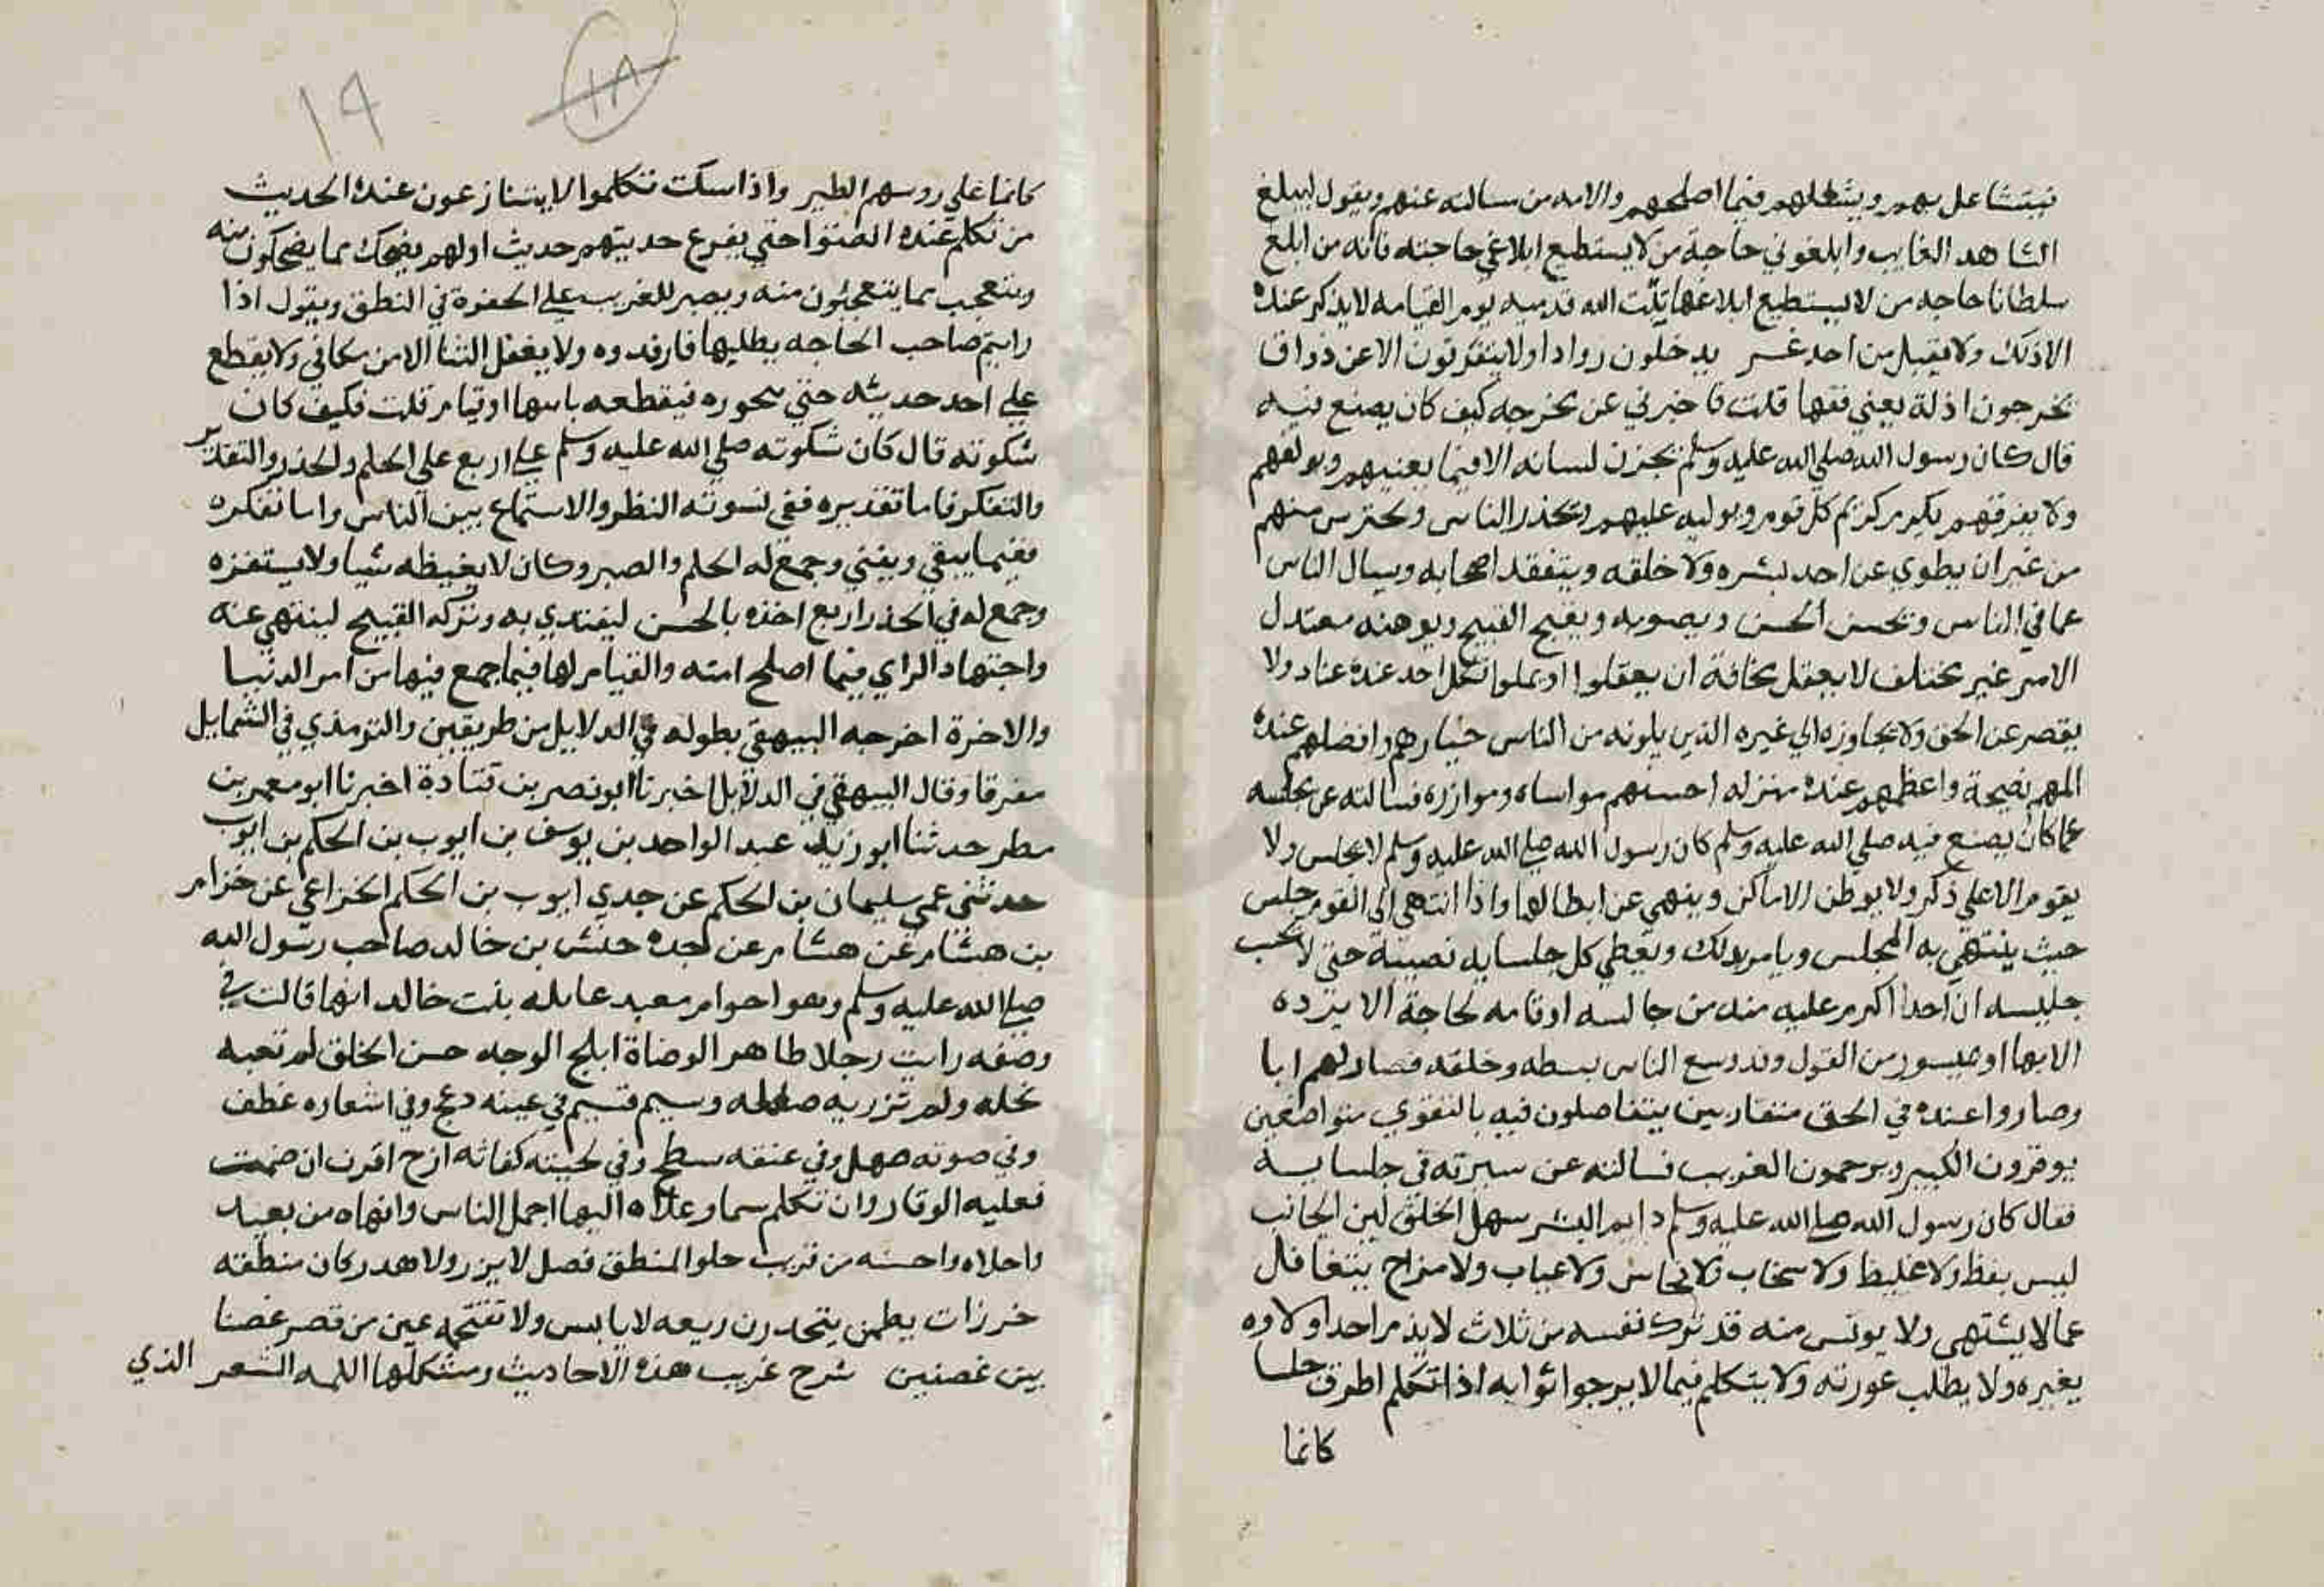 فيتشاغل بهم ويشغلهم فيما اصلحهم والامه من مسالته عنهم ويقول ليبلغ
الشاهد الغايب وابلغوني حاجة من لا يستطيع ابلاغي حاجته فانه من ابلغ
سلطانا حاجه من لا يستطيع ابلاغها ثبت الله قدميه يوم القيامه لا يذكر عنده
الا ذلك ولا يقبل من احد غيره يدخلون روادا ولا يتفرقون الا عن ذواق
يخرجون اذلة يعني فقها قلت فاخبرني عن مخرجه كيف كان يصنع فيه
قال كان رسول الله صلي الله عليه وسلم يخزن لسانه الا فيما يعنيهم ويولفهم
ولا يفرقهم يكرم كريم كل قوم ويوليه عليهم ويحذر الناس ويحترس منهم
من غير ان يطوي عن احد بشره ولا خلقه ويتفقد اصحابه ويسال الناس
عما في الناس ويحسن الحسن ويصوبه ويقبح القبيح ويوهنه معتدل
الامر غير مختلف لا يعقل مخافة ان يعقلوا او يملوا لكل احد عنده عناد ولا
يقصر عن الحق ولا يجاوزه الي غيره الذين يلونه من الناس خيارهم وافضلهم عنده
المهم نصيحة واعظمهم عنده منزله احسنهم مواساه وموازره فسالته عن مجلسه
عما كان يصنع فيه صلي الله عليه وسلم كان رسول الله صلي الله عليه وسلم لا يجلس ولا
يقوم الا علي ذكر ولا يوطن الاماكن وينهي عن ايطالها واذا انتهي الي القوم جلس
حيث ينتهي به المجلس ويامر بذلك ويعطي كل جلسايه نصيبه حتي لا يحسب
جليسه ان احدا اكرم عليه منه من جالسه او قامه لحاجة الا يرده
الا بها او ميسور من القول وقد وسع الناس بسطه وخلقه فصار لهم ابا
وصاروا عنده في الحق متقاربين يتفاصلون فيه بالتقوي متواضعين
يوقرون الكبير ويرحمون الغريب فسالته عن سيرته في جلسايه
فقال كان رسول الله صلي الله عليه وسلم دايم البشر سهل الخلق لين الجانب
ليس بفظ ولا غليظ ولا سخاب ولا فحاش ولا عياب ولا مزاح يتغافل
عما لا يشتهي ولا يوئس منه قد ترك نفسه من ثلاث لا يذم احدا ولا
يغيره ولا يطلب عورته ولا يتكلم فيما لا يرجوا ثوابه اذا تكلم اطرق جلسا
كانما
١٨
١٩
كانما علي روسهم الطير واذا سكت تكلموا لا يتنازعون عنده الحديث
من تكلم عنده انصتوا حتي يفرغ حديثهم حديث اولهم يضحك مما يضحكون منه
ويتعجب مما يتعجبون منه ويصبر للغريب علي الجفوة في النطق ويقول اذا
رايتم صاحب الحاجه يطلبها فارفدوه ولا يقبل الثنا الا من مكافي ولا يقطع
علي احد حديثه حتي يجوره فيقطعه بانها او قيام قلت فكيف كان
سكوته قال كان سكوته صلي الله عليه وسلم علي اربع علي الحلم والحذر والتقدير
والتفكر فاما تقديره ففي تسوته النظر والاستماع بين الناس واما تفكره
ففيما يبقي ويفني وجمع له الحلم والصبر وكان لا يغيظه شيا ولا يستفزه
وجمع له في الحذر اربع اخذه بالحسن ليقتدي به وتركه القبيح لينتهي عنه
واجتهاد الراي فيما اصلح امته والقيام لها فيما جمع فيها من امر الدنيا
والاخرة اخرجه البيهقي بطوله في الدلايل من طريقين والترمذي في الشمايل
مفرقا وقال البيهقي في الدلايل اخبرنا ابو نصر بن قتادة اخبرنا ابو معمر بن
مطر حدثنا ابو زيد عبد الواحد بن يوسف بن ايوب بن الحكم بن ايوب
حدثني عمي سليمان بن الحكم عن جدي ايوب بن الحكم الخزاعي عن حزام
بن هشام عن هشام عن جده حنش بن خالد صاحب رسول الله
صلي الله عليه وسلم وهو اخو ام معبد عابله بنت خالد انها قالت في
وصفه رايت رجلا ظاهر الوضاة ابلج الوجه حسن الخلق لم تعبه
نحله ولم تزر به صعله وسيم قسيم في عينه دعج وفي اشفاره غطف
وفي صوته صهل وفي عنقه سطح وفي لحيته كفاثه ازج اقرن ان صمت
فعليه الوقار وان تكلم سما وعلاه البها اجمل الناس وابهاه من بعيد
واحلاه واحسنه من قريب حلو المنطق فصل لا يزر ولا هدر كان منطقه
خرزات يطمن يتحدرن ربعه لا يابس ولا تقتحمه عين من قصر غصنا
بين غصنين شرح غريب هذه الاحاديث ومشكلها اللمه الشعر الذي